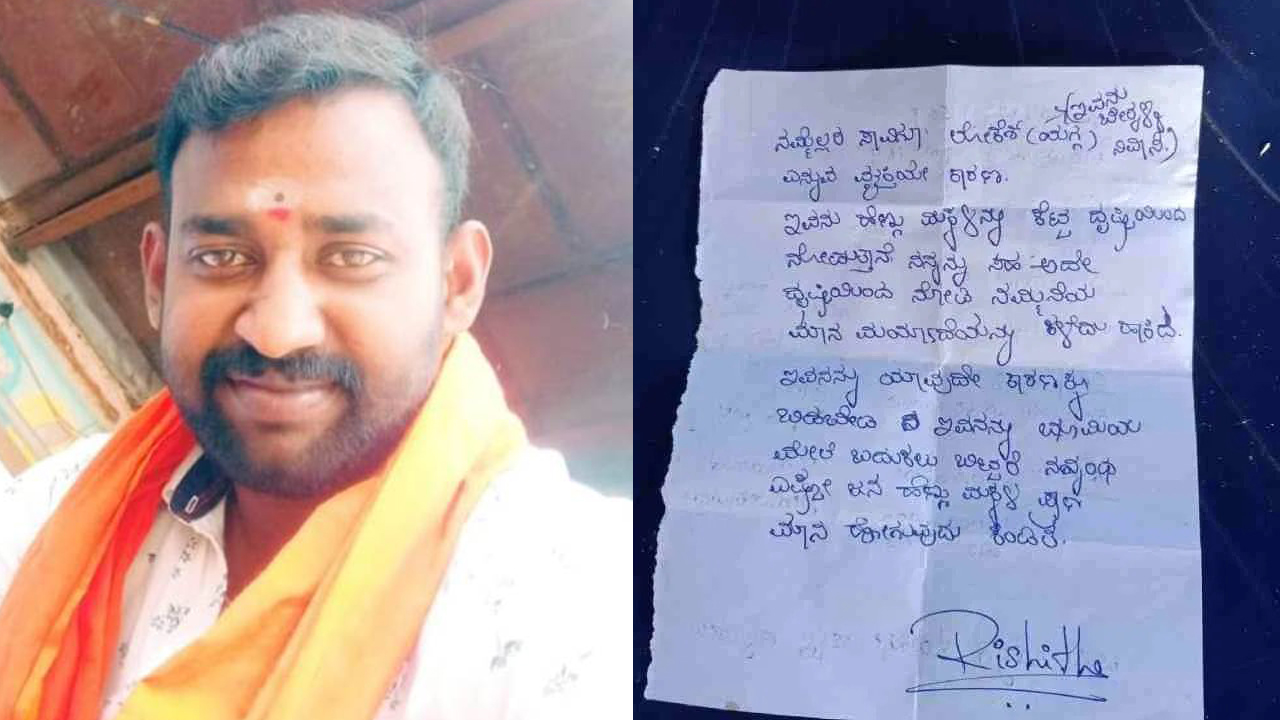 (ಇವನು
ಬೆಳ್ಳಳ್ಳಿ
ನಮ್ಮೆಲ್ಲರ ಸಾವಿಗೂ ಲೋಕೇಶ್ (ಯಗ್ಗ) ನಿವಾಸಿ.)
ಎನ್ನುವ ವ್ಯಕ್ತಿಯೇ ಕಾರಣ.
ಇವನು ಹೆಣ್ಣು ಮಕ್ಕಳನ್ನು ಕೆಟ್ಟ ದೃಷ್ಟಿಯಿಂದ
ನೋಡುತ್ತಾನೆ ನನ್ನನ್ನು ಸಹ ಅದೇ
ದೃಷ್ಟಿಯಿಂದ ನೋಡಿ ನಮ್ಮನೆಯ
ಮಾನ ಮರ್ಯಾದೆಯನ್ನು ಕಳೆದು ಹಾಕಿದ.
ಇವನನ್ನು ಯಾವುದೇ ಕಾರಣಕ್ಕು
ಬಿಡಬೇಡಿ ಇವನನ್ನು ಭೂಮಿಯ
ಮೇಲೆ ಬದುಕಲು ಬಿಟ್ಟರೆ ನಮ್ಮಂಥ
ಎಷ್ಟೋ ಜನ ಹೆಣ್ಣು ಮಕ್ಕಳ ಪ್ರಾಣ
ಮಾನ ಹೋಗುವುದು ಖಂಡಿತ.
Rishitha